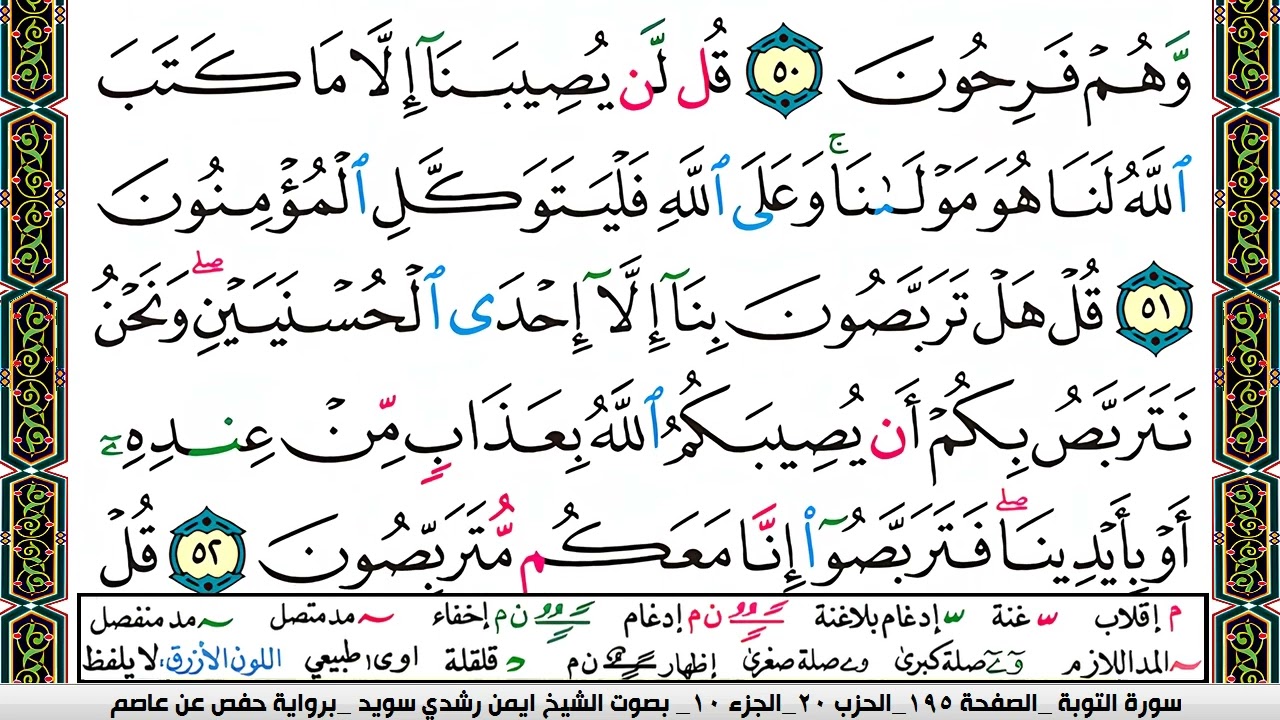 وَّهُمْ فَرِحُونَ ٥٠ قُل لَّن يُصِيبَنَآ إِلَّا مَا كَتَبَ
ٱللَّهُ لَنَا هُوَ مَوْلَىٰنَا ۚ وَعَلَى ٱللَّهِ فَلْيَتَوَكَّلِ ٱلْمُؤْمِنُونَ
٥١ قُلْ هَلْ تَرَبَّصُونَ بِنَآ إِلَّآ إِحْدَى ٱلْحُسْنَيَيْنِ ۖ وَنَحْنُ
نَتَرَبَّصُ بِكُمْ أَن يُصِيبَكُمُ ٱللَّهُ بِعَذَابٍ مِّنْ عِندِهِۦٓ
أَوْ بِأَيْدِينَا ۖ فَتَرَبَّصُوٓا۟ إِنَّا مَعَكُم مُّتَرَبِّصُونَ ٥٢ قُلْ
م إقلاب غنة إدغام بلاغنة ن م إدغام ن م إخفاء مد متصل مد منفصل
المد اللازم صلة كبرى صلة صغرى إظهار ن م قلقلة اوى طبيعي اللون الأزرق: لا يلفظ
سورة التوبة _الصفحة ١٩٥_الحزب ٢٠_الجزء ١٠_ بصوت الشيخ ايمن رشدي سويد _برواية حفص عن عاصم